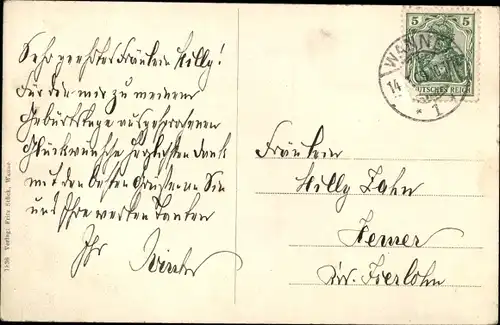 Sehr geehrtes Fräulein Hilly!
Für die mir zu meinem
Geburtstage ausgesprochenen
Glückwünsche herzlichsten Dank
mit den besten Grüssen an Sie
und Ihre werten Tanten
Ihr
5 5
DEUTSCHES REICH
WANNE
14
* 1
Fräulein
Hilly Jahn
Hemer
Kr. Iserlohn
7536 Verlag: Fritz Schick, Wanne